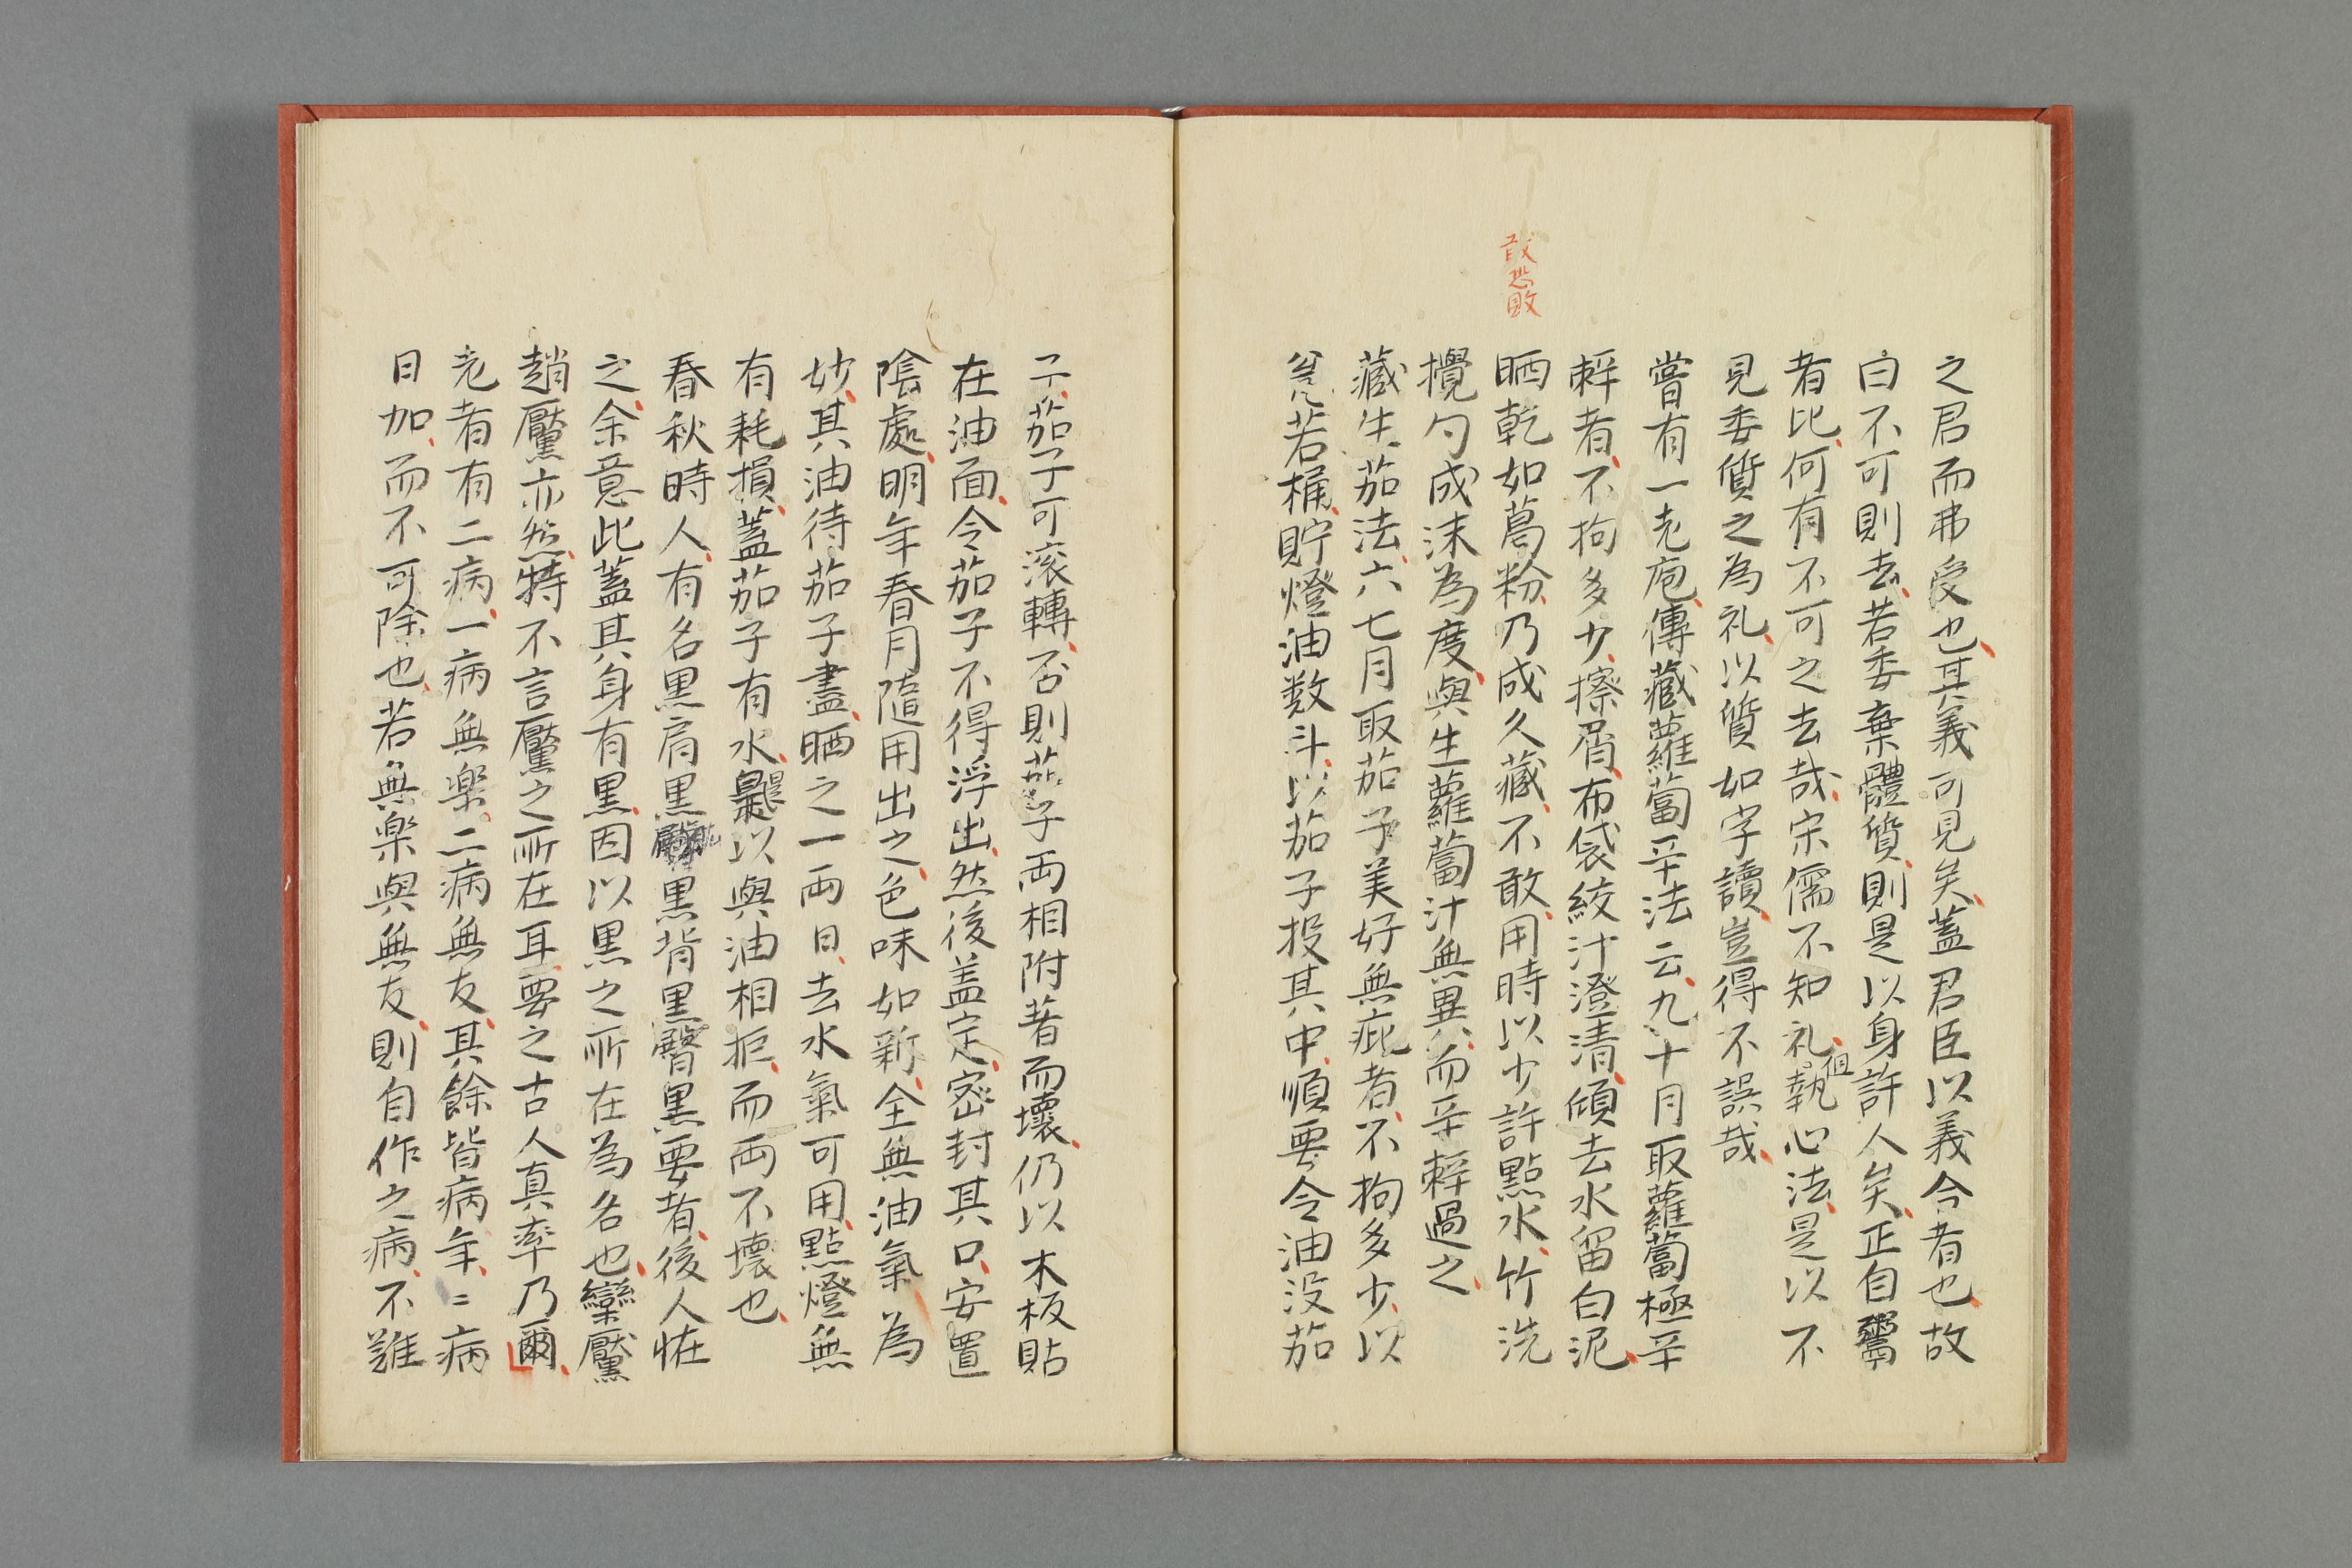 之君而弗受也其義可見矣蓋君臣以義合者也故
曰不可則去若委棄體質則是以身許人矣正自鬻
者比何有不可之去哉宋儒不知礼執心法是以不
但
見委質之為礼以質如字讀豈得不誤哉
嘗有一老庖傳藏蘿蔔辛法云九十月取蘿蔔極辛
辢者不拘多少擦屑布袋絞汁澄清傾去水留白泥
晒乾如葛粉乃成久藏不敢用時以少許點水竹洗
敢恐敗
攪勻成沫為度與生蘿蔔汁無異而辛辢過之
藏生茄法六七月取茄子美好無疵者不拘多少以
瓮若桶貯燈油数斗以茄子投其中順要令油没茄
子茄子可滚轉否則茄子両相附著而壞仍以木板貼
在油面令茄子不得浮出然後盖定密封其口安置
陰處明年春月隨用出之色味如新全無油氣為
妙其油待茄子盡晒之一両日去水氣可用點燈無
有耗損蓋茄子有水氣以與油相拒而両不壊也
春秋時人有名黒肩黒黒背黒臀黒要者後人恠
之余意此蓋其身有黒因以黒之所在為名也欒黶
趙黶亦然特不言黶之所在耳要之古人真率乃爾
老者有二病一病無楽二病無友其餘皆病年〻病
日加而不可除也若無楽與無友則自作之病不難